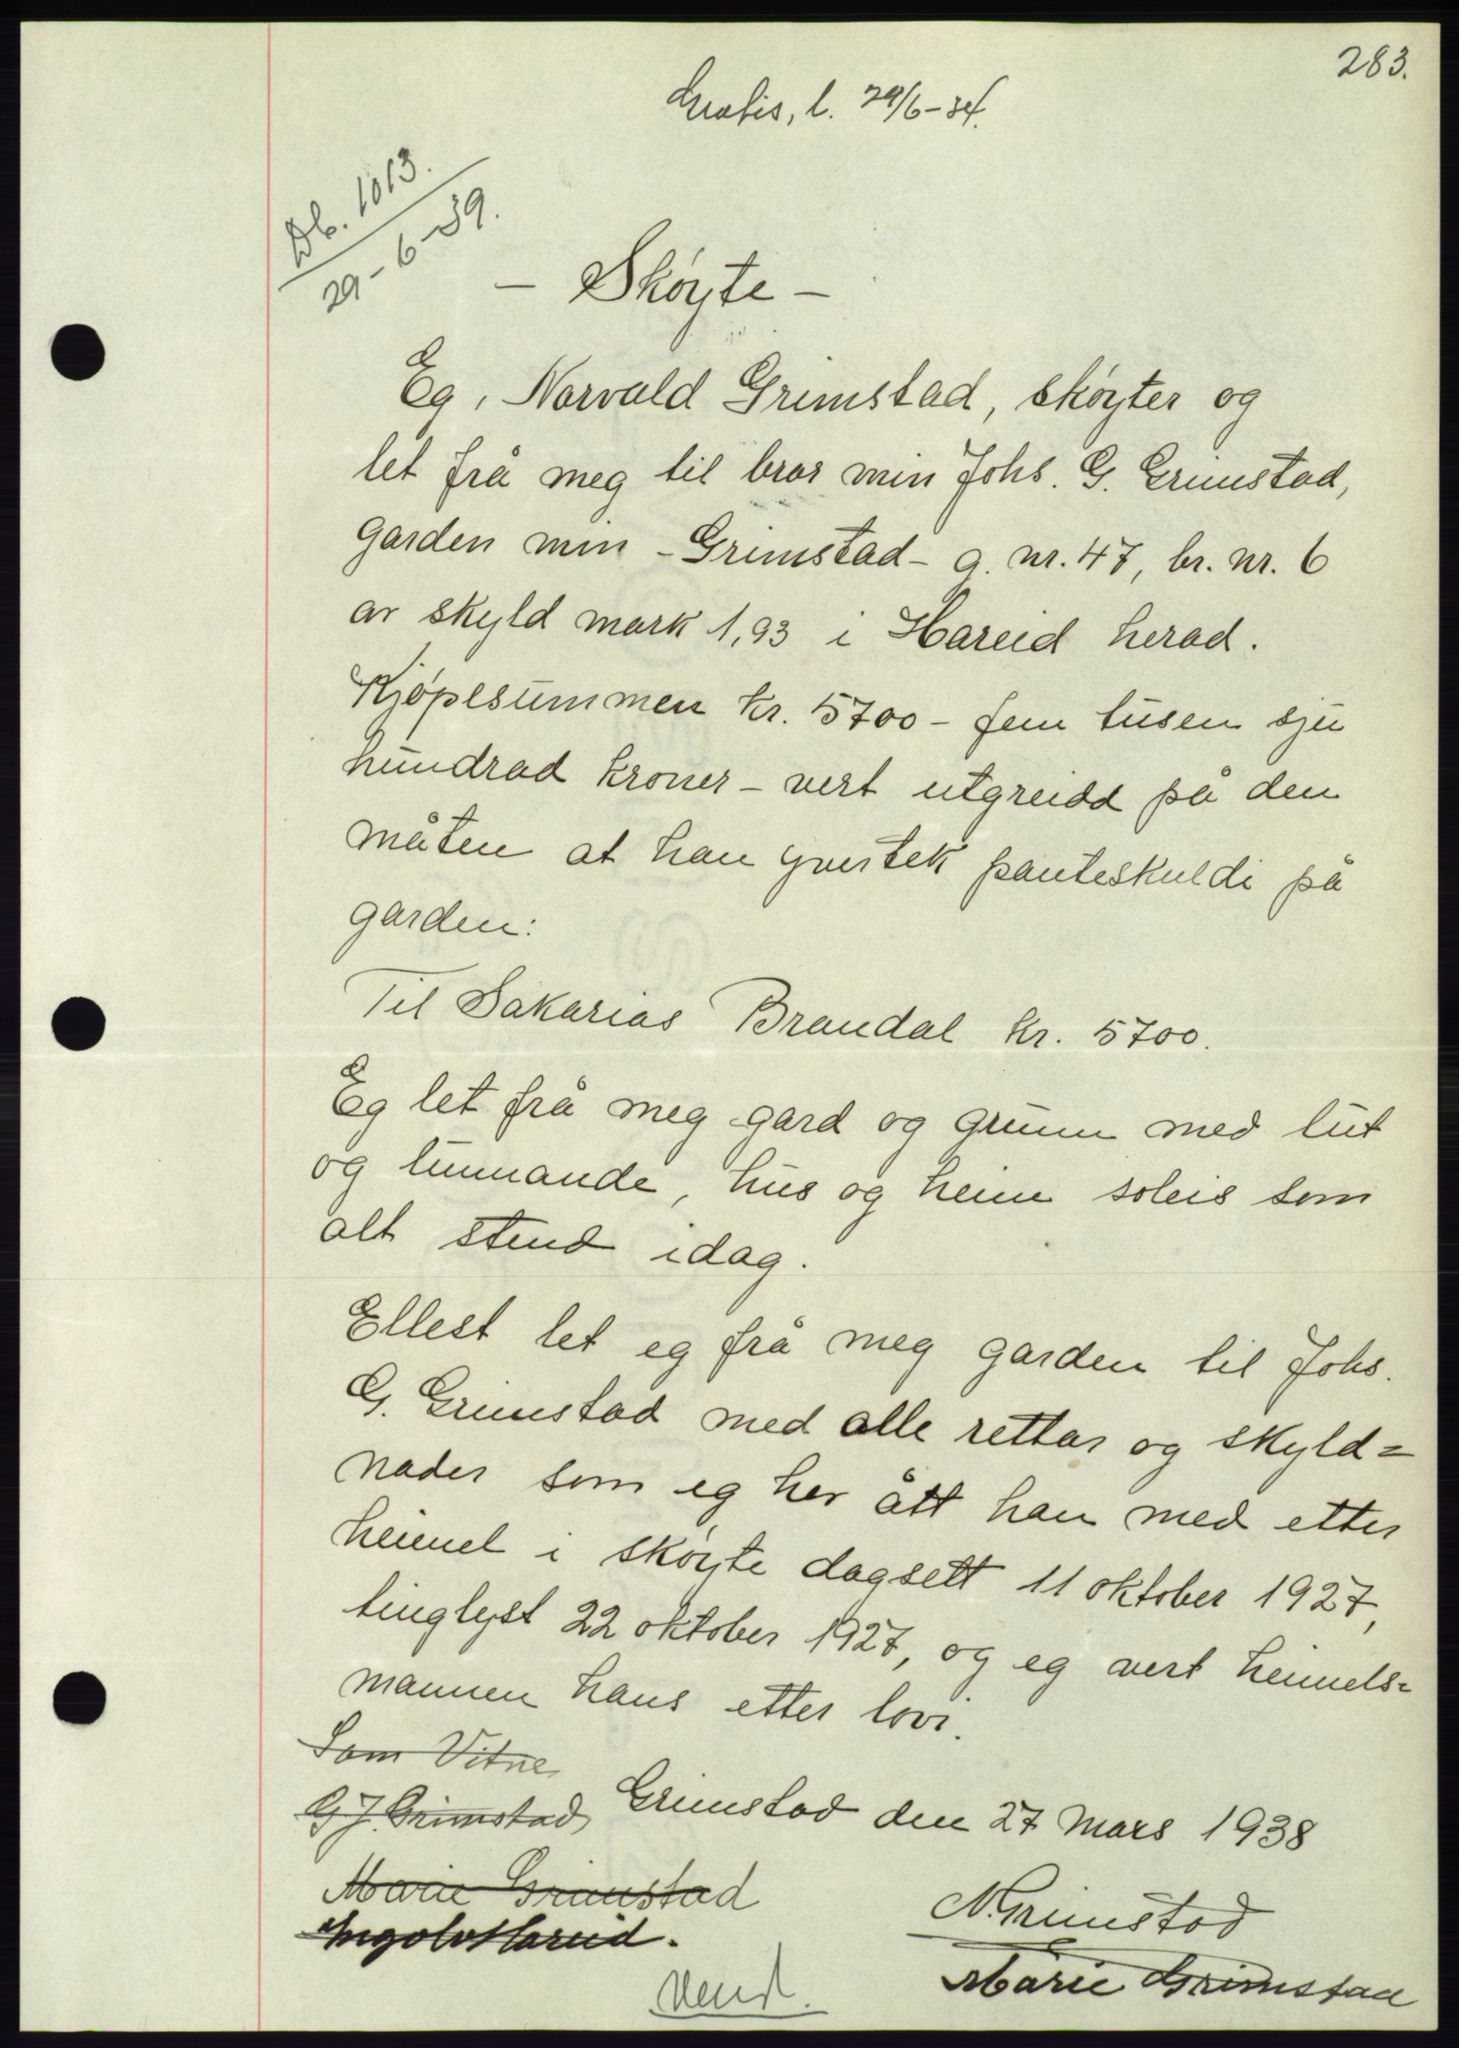 283.
Gratis, l. 29/6-34.
Db. 1013.
29-6-39.
- Skøyte -
Eg, Norvald Grimstad, skøyter og
let frå meg til bror min Johs. G. Grimstad,
garden min - Grimstad - g. nr. 47, br. nr. 6
av skyld mark 1,93 i Hareid herad.
Kjøpesummen kr. 5700 - fem tusen sju
hundrad kroner - vert utgreidd på den
måten at han yvertek panteskuldi på
garden:
Til Sakarias Brandal kr. 5700.
Eg let frå meg gard og grunn med lut
og lunnande, hus og heim soleis som
alt stend idag.
Ellest let eg frå meg garden til Johs.
G. Grimstad med alle rettar og skyld=
nader som eg her ått han med etter
heimel i skøyte dagsett 11 oktober 1927,
tinglyst 22 oktober 1927, og eg vert heimels=
mannen hans etter lovi.
Som Vitne
G J. Grimstad
Grimstad den 27 Mars 1938
Marie Grimstad
N. Grimstad
Ingolv Hareid.
Marie Grimstad
Vend.